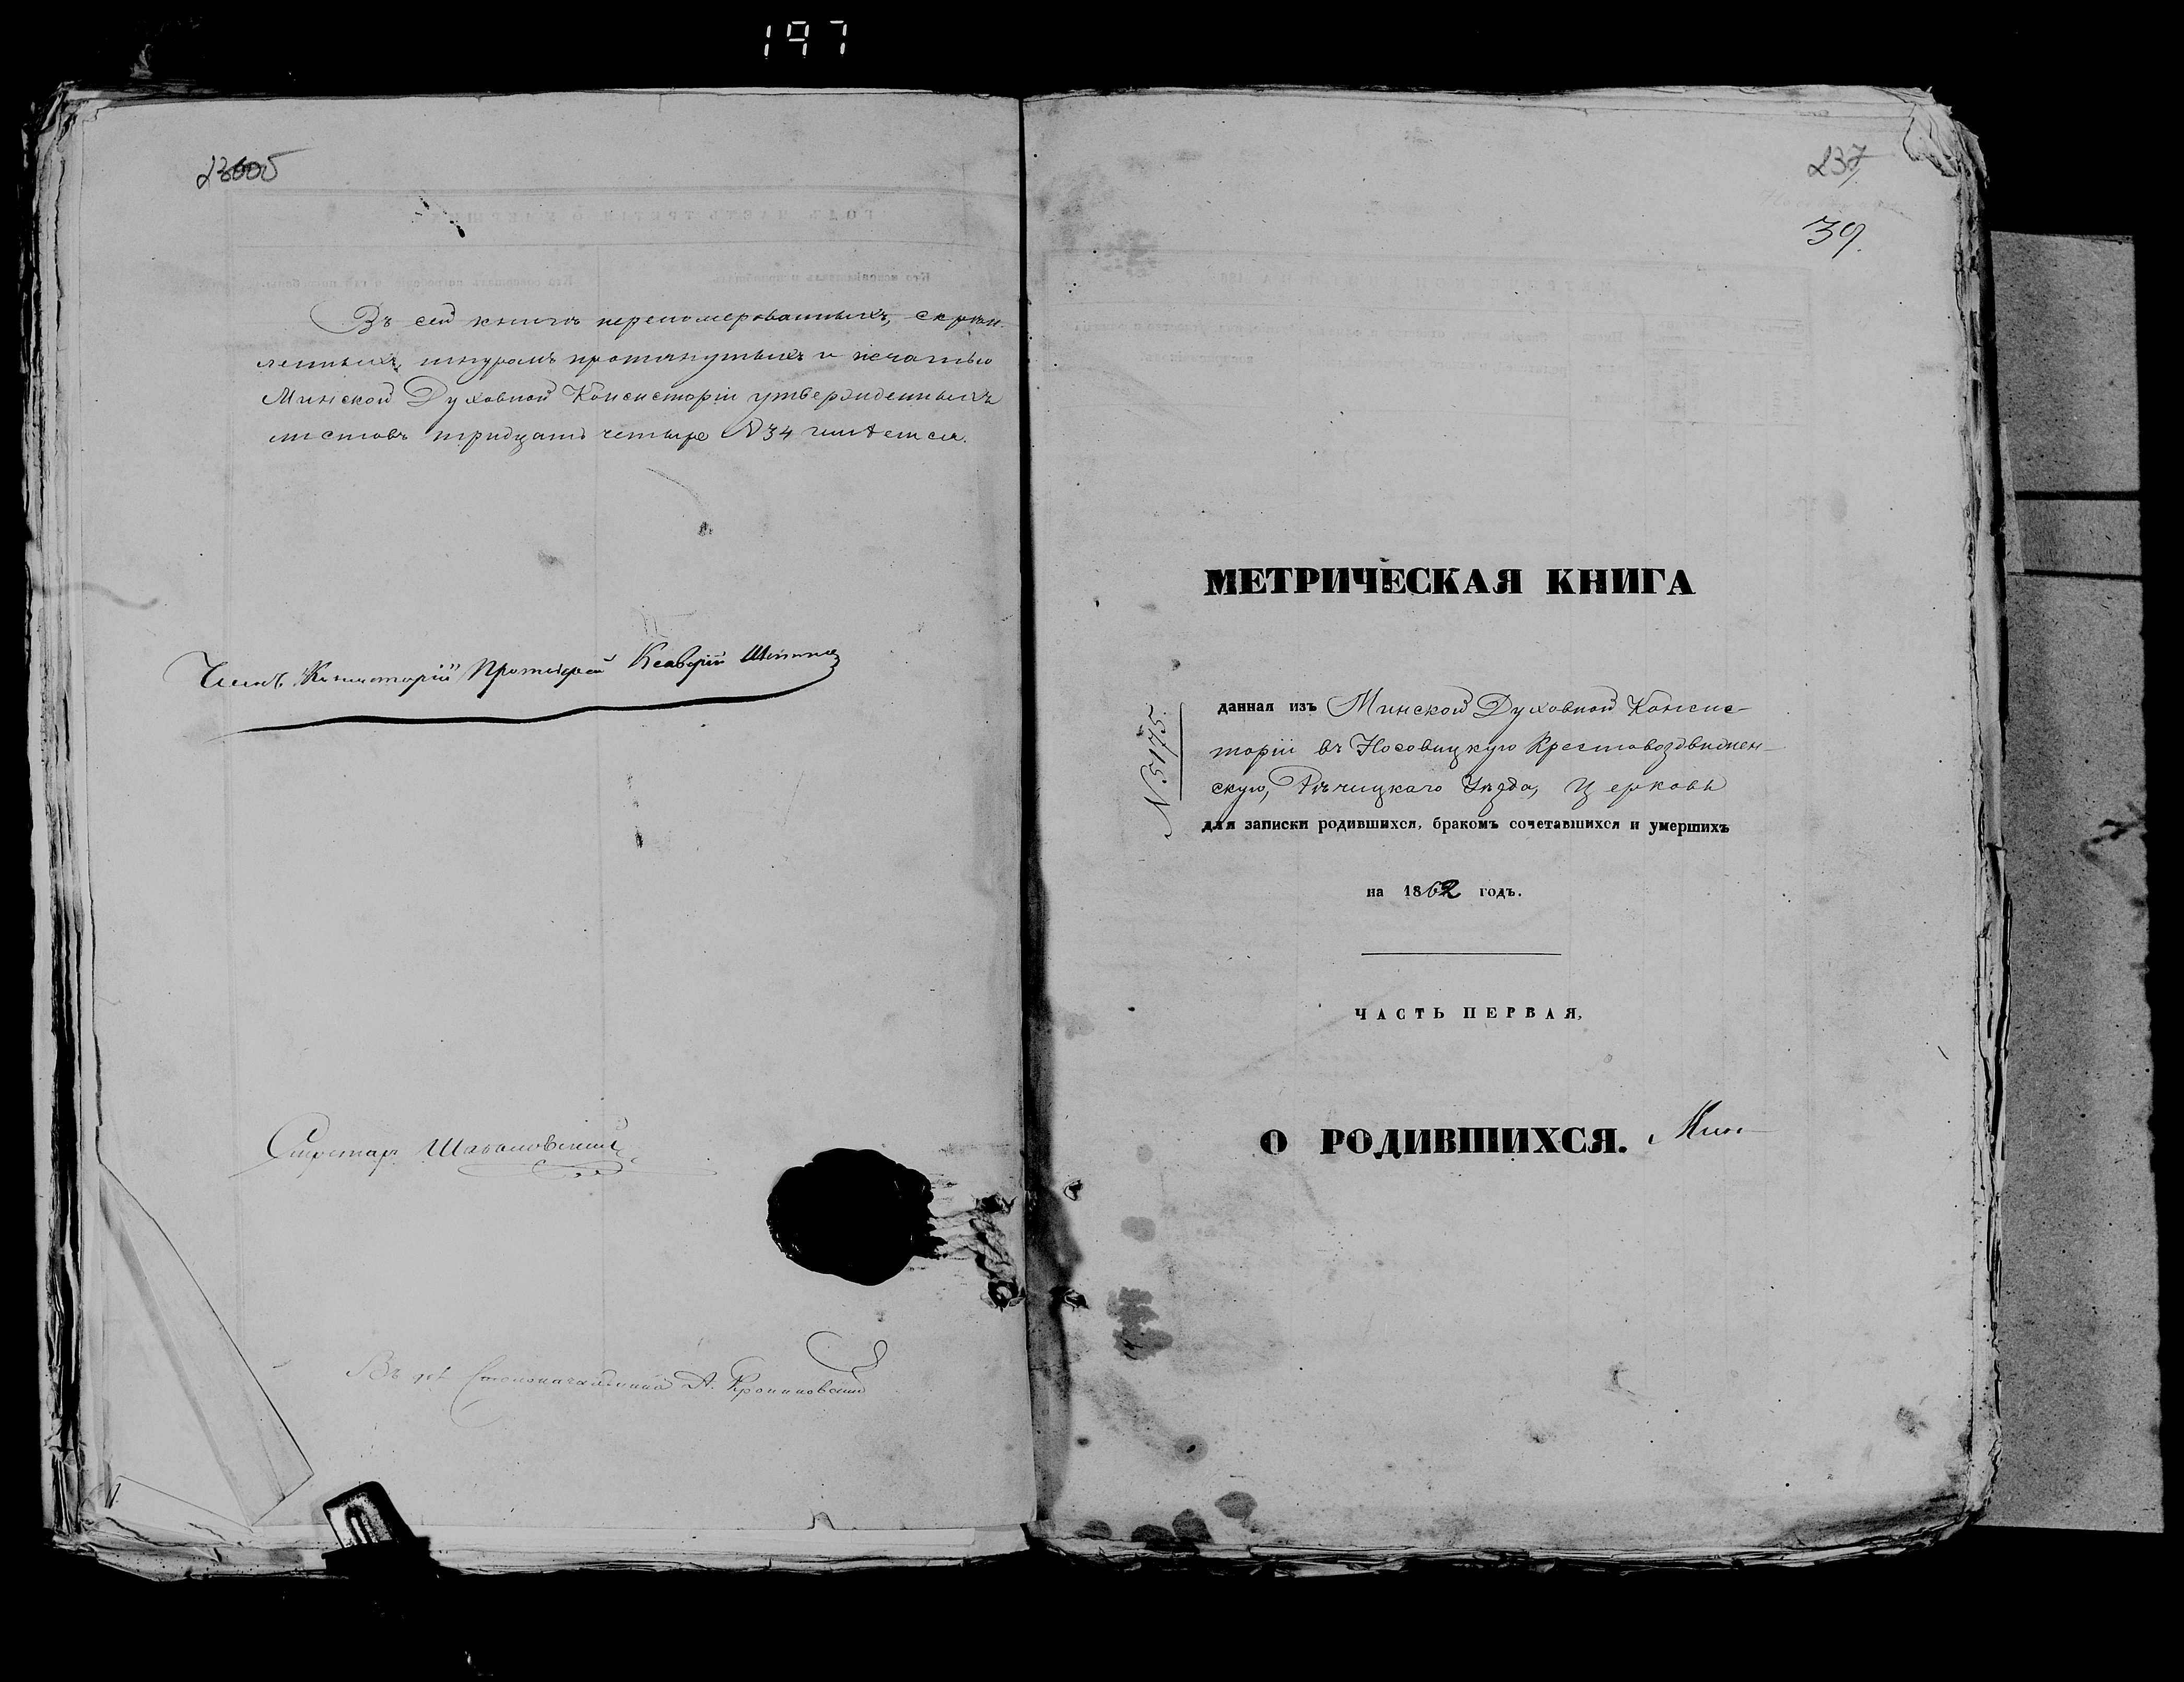 197
Въ сей книгѣ перенумерованныхъ, скрѣп-
ленныхъ, шнуромъ протянутыхъ и печатью
Минской Духовной Консисторіи утвержденныхъ
листовъ тридцать четыре №34 имѣется.
Членъ Консисторіи Протоіерей Ксаверій
Секретарь
Столоначальника А.
237
39.
МЕТРИЧЕСКАЯ КНИГА
№5175.
данная изъ Минской Духовной Консис-
торіи въ Носовицкую Крестовоздвижен-
скую, Рѣчицкаго Уѣзда, Церковь
для записки родившихся, бракомъ сочетавшихся и умершихъ
на 1862 годъ.
ЧАСТЬ ПЕРВАЯ,
О РОДИВШИХСЯ. Мин-